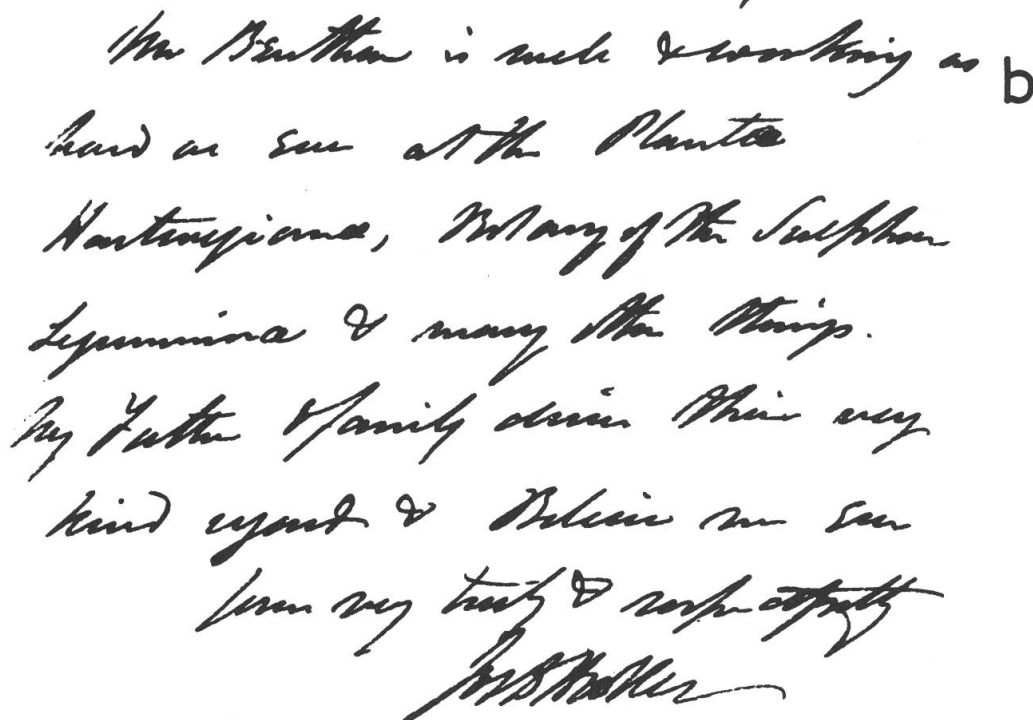 Mr Bentham is well & working as
b
hard as ever at the Plantae
Hartwegianae, Botany of the Sulphur
Leguminae & many other things.
My Father & family desire their very
kind regards & Believe me ever
your very truly & respectfully
Jos D Hooker